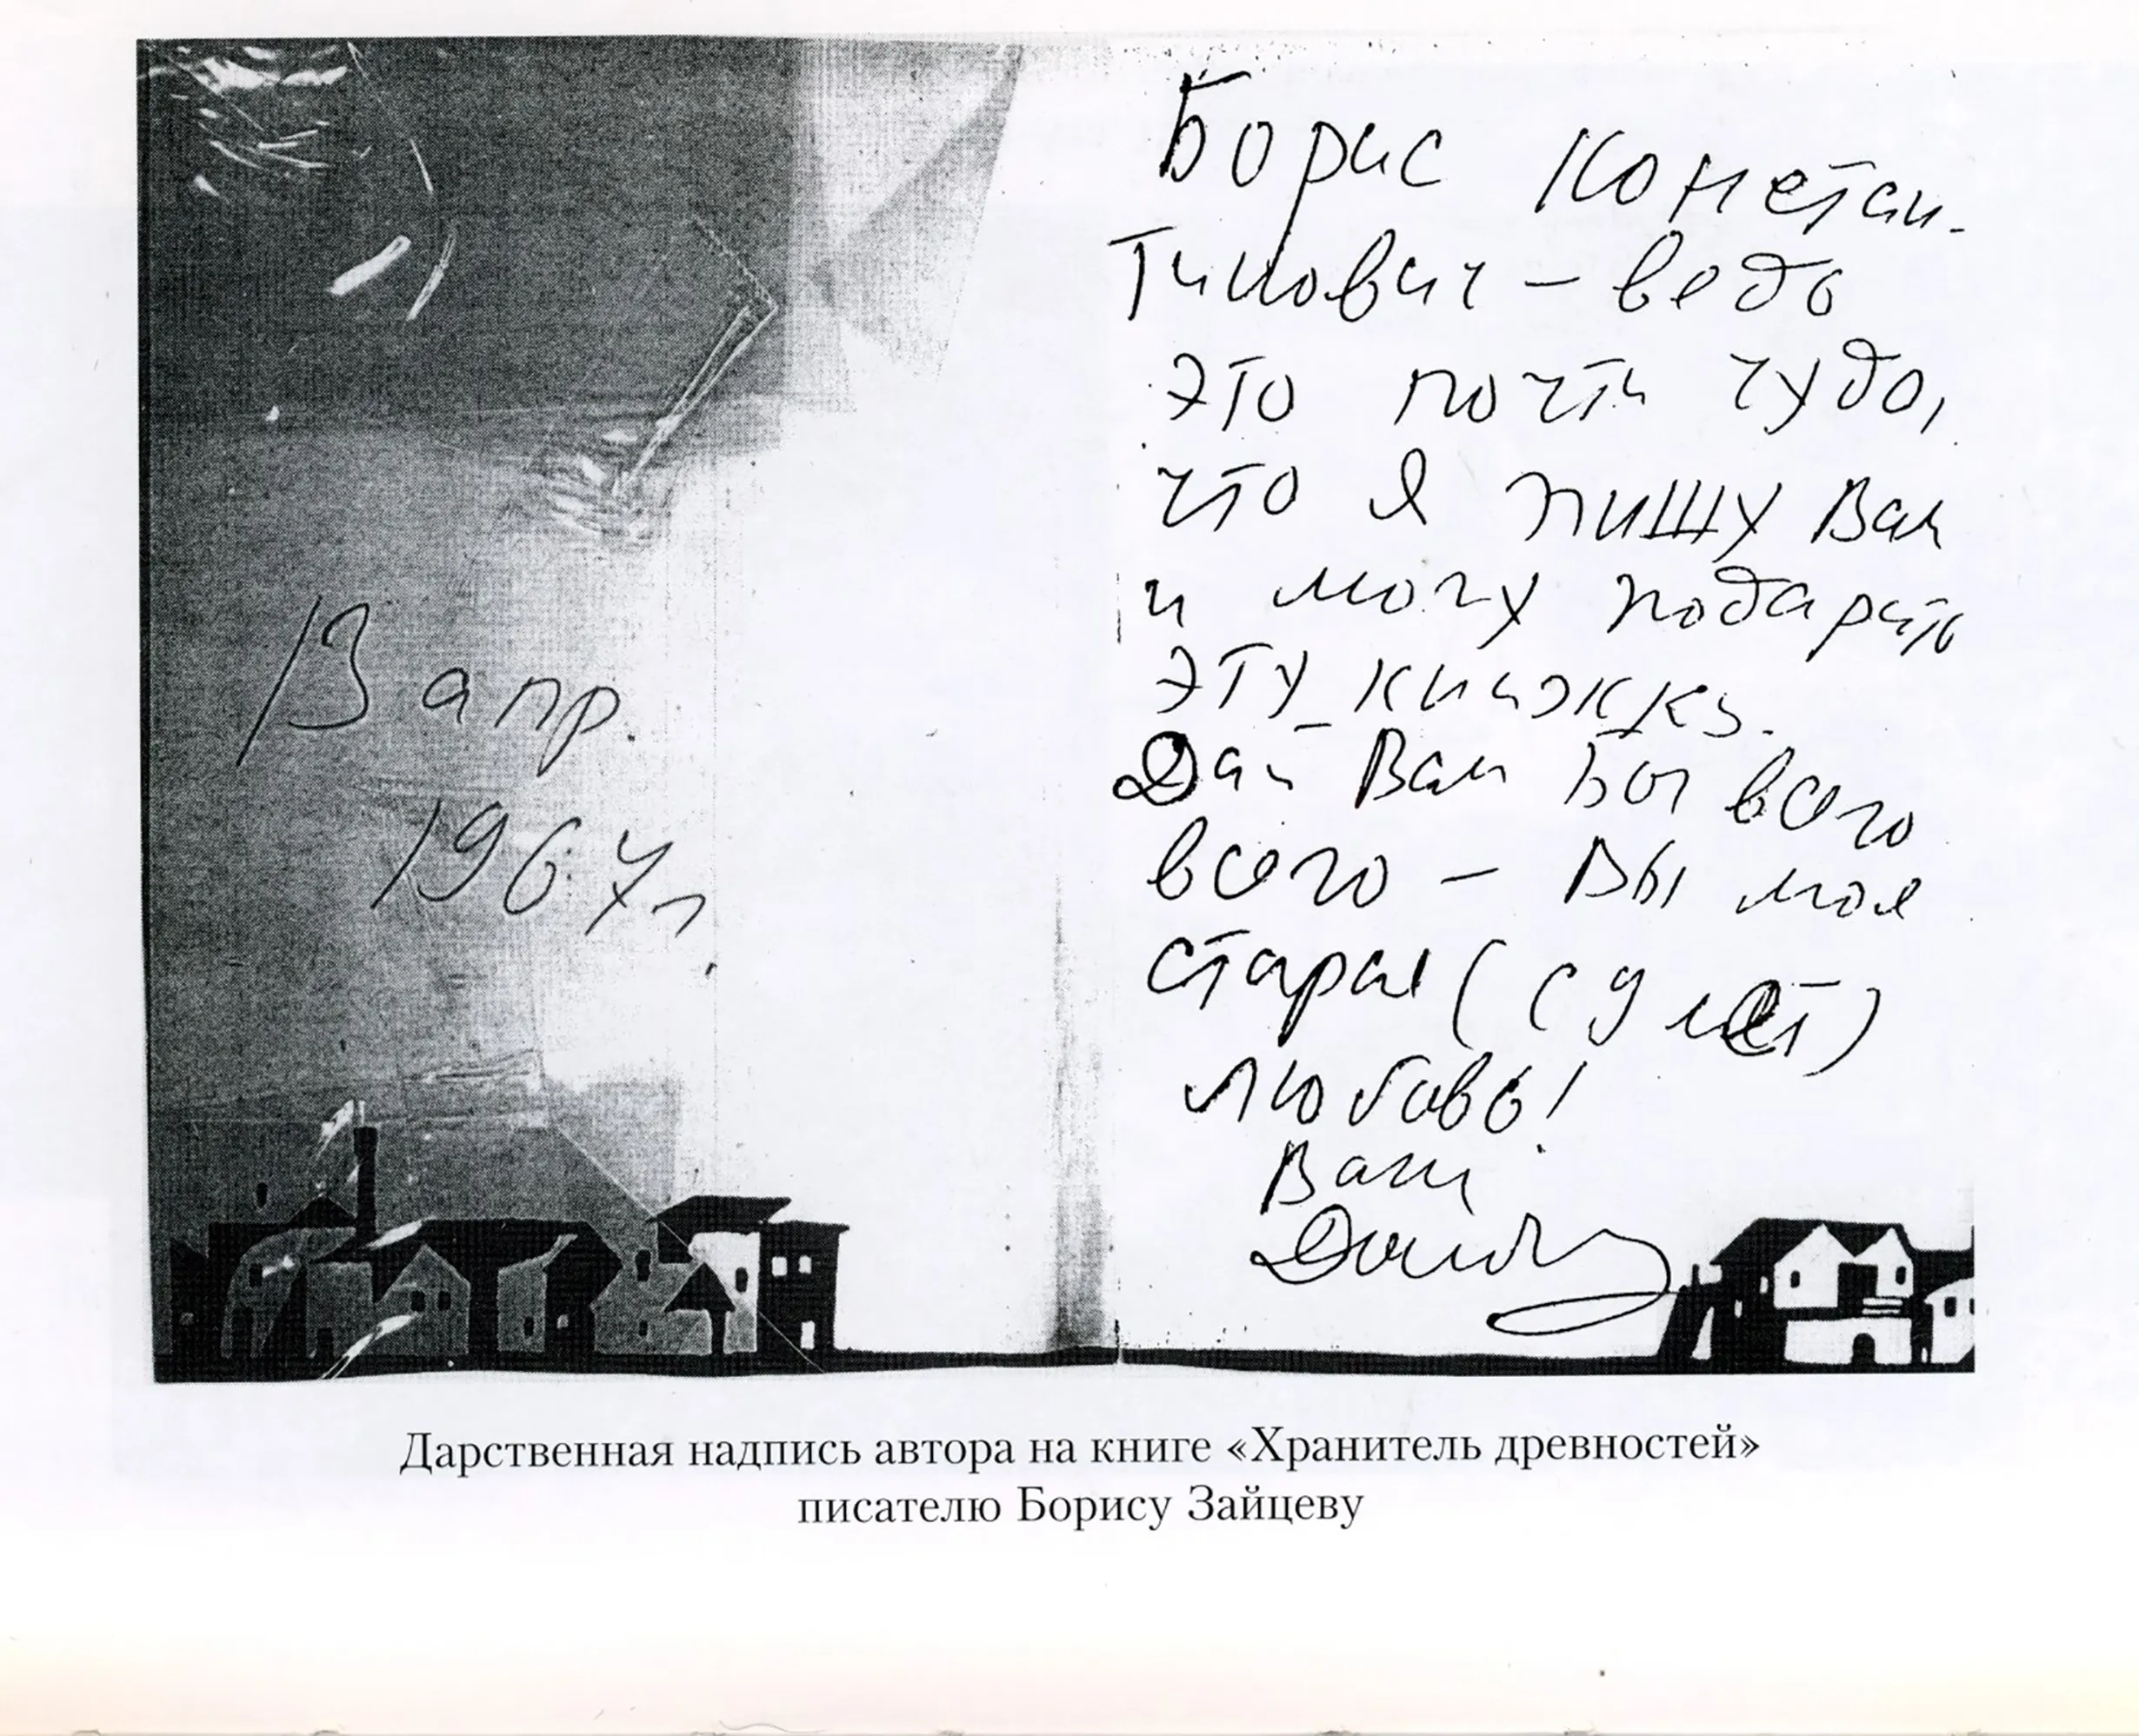 13 апр.
1967г
Борис Констан-
тинович – ведь
это почти чудо,
что я пишу Вам
и могу подарить
эту книжку.
Дай Вам Бог всего
всего – Вы моя
старая (с 9 лет)
любовь!
Ваш
Дарственная надпись автора на книге «Хранитель древностей»
писателю Борису Зайцеву